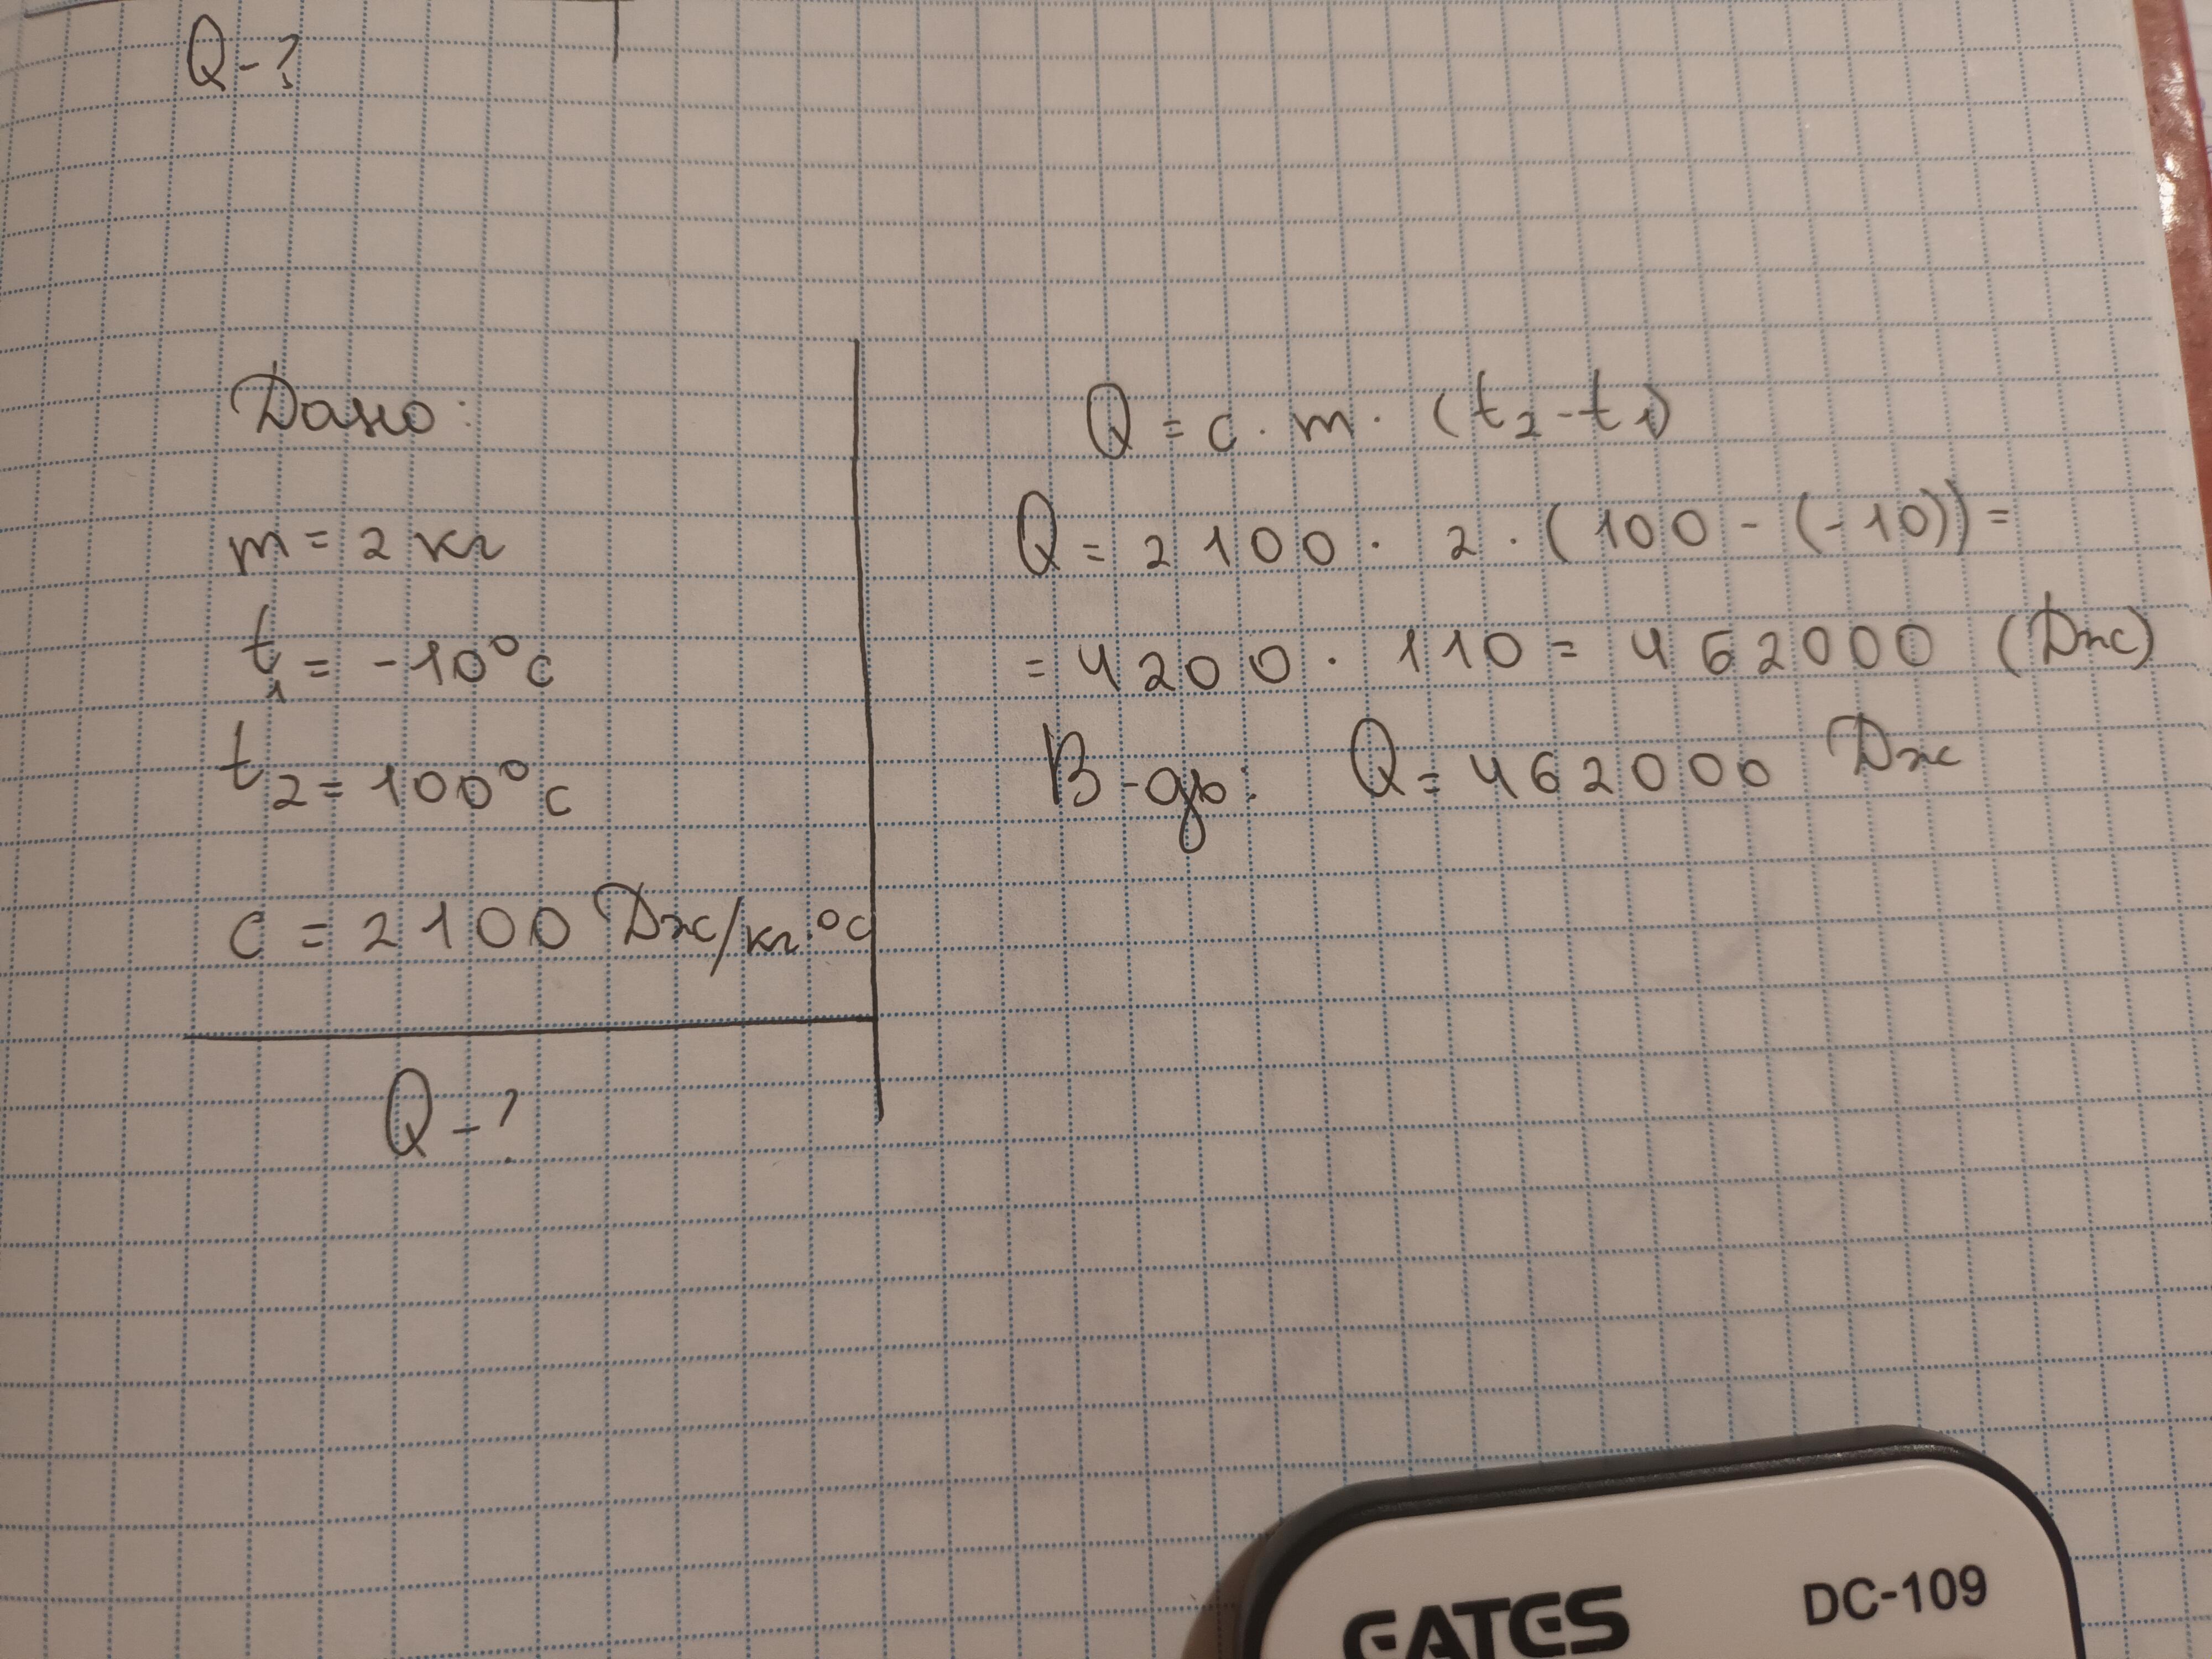 Q-?
Дано:
m = 2 кг
t₁ = -10°c
t₂ = 100°c
c = 2100 Дж/кг·°c
Q-?
Q = c · m · (t₂ - t₁)
Q = 2100 · 2 · (100 - (-10)) =
= 4200 · 110 = 462000 (Дж)
В-дь: Q = 462000 Дж
EATES
DC-109